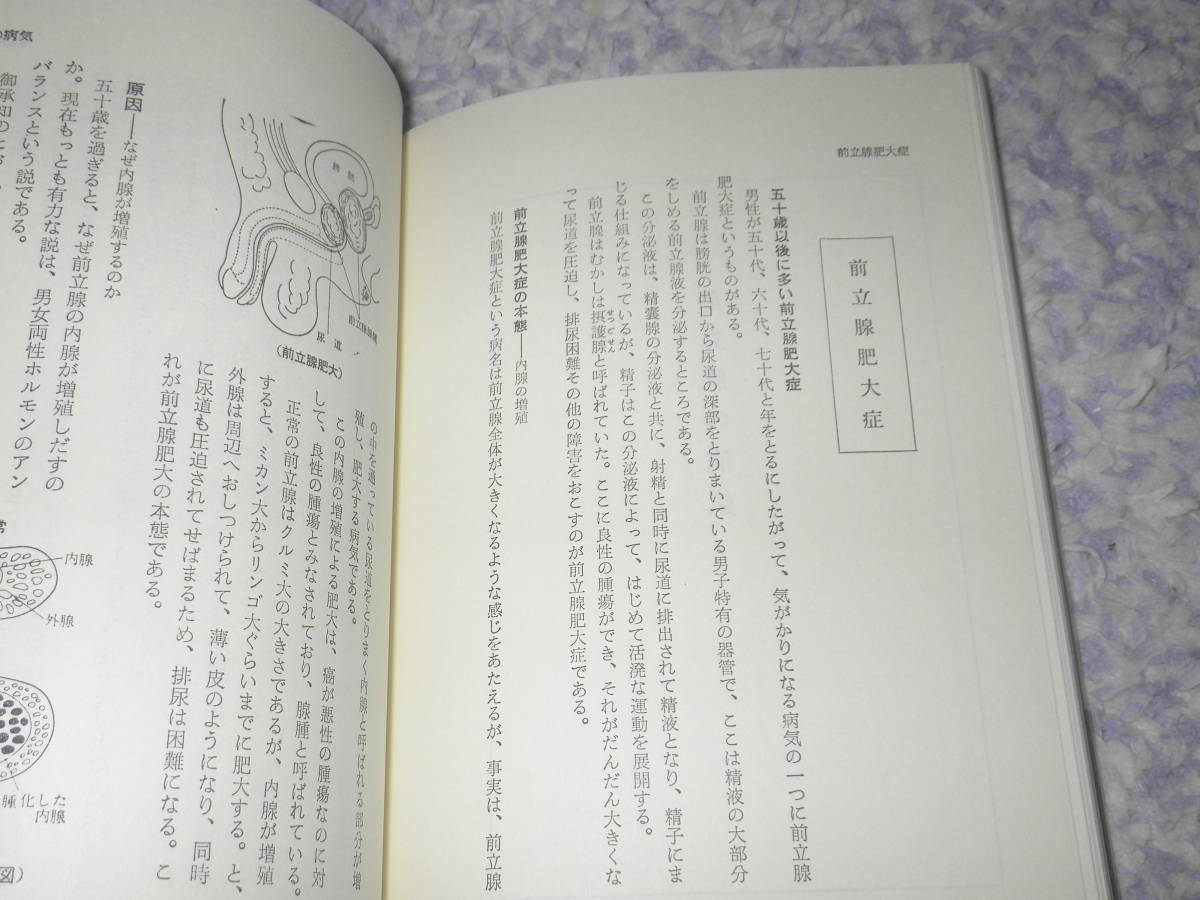 前立腺肥大症
前立腺肥大症
五十歳以後に多い前立腺肥大症
男性が五十代、六十代、七十代と年をとるにしたがって、気がかりになる病気の一つに前立腺
肥大症というものがある。
前立腺は膀胱の出口から尿道の深部をとりまいている男子特有の器管で、ここは精液の大部分
をしめる前立腺液を分泌するところである。
この分泌液は、精嚢腺の分泌液と共に、射精と同時に尿道に排出されて精液となり、精子にま
じる仕組みになっているが、精子はこの分泌液によって、はじめて活発な運動を展開する。
前立腺はむかしは摂護腺と呼ばれていた。ここに良性の腫瘍ができ、それがだんだん大きくな
せつごせん
って尿道を圧迫し、排尿困難その他の障害をおこすのが前立腺肥大症である。
前立腺肥大症の本態――内腺の増殖
前立腺肥大症という病名は前立腺全体が大きくなるような感じをあたえるが、事実は、前立腺
の病気
の中を通っている尿道をとりまく内腺と呼ばれる部分が増
殖し、肥大する病気である。
この内腺の増殖による肥大は、癌が悪性の腫瘍なのに対
して、良性の腫瘍とみなされており、腺腫と呼ばれている。
正常の前立腺はクルミ大の大きさであるが、内腺が増殖
すると、ミカン大からリンゴ大ぐらいまでに肥大する。と、
外腺は周辺へおしつけられて、薄い皮のようになり、同時
に尿道も圧迫されてせばまるため、排尿は困難になる。こ
れが前立腺肥大の本態である。
膀胱
尿道
(前立腺肥大)
原因――なぜ内腺が増殖するのか
五十歳を過ぎると、なぜ前立腺の内腺が増殖しだすの
か。現在もっとも有力な説は、男女両性ホルモンのアン
バランスという説である。
御承知のとお
常
内腺
外腺
腫化した
内腺
図)